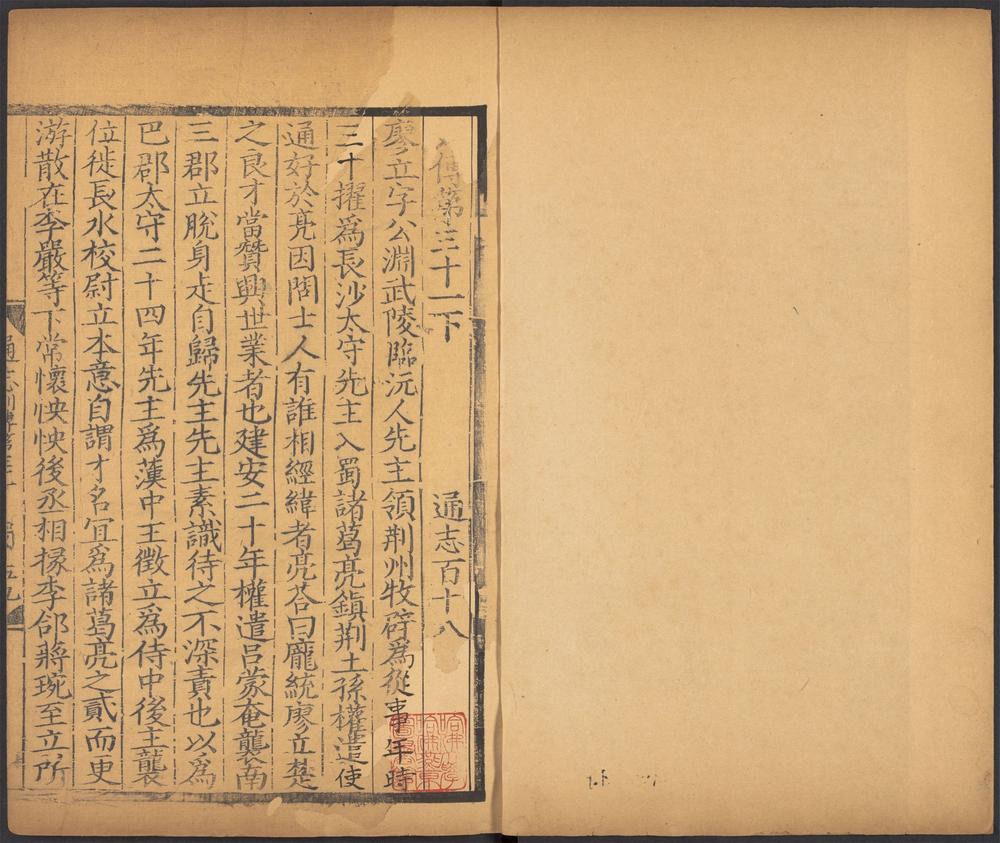 傳第三十一下　通志百十八
廖立字公淵武陵臨沅人先主領荆州牧辟為從事年時
三十擢爲長沙太守先主入蜀諸葛亮鎮荆土孫權遣使
通好於亮因問士人有誰相經緯者亮荅曰龐統廖立楚
之良才當贊興世業者也建安二十年權遣吕蒙奄襲南
三郡立脫身走自歸先主先主素識待之不深責也以爲
巴郡太守二十四年先主爲漢中王徵立爲侍中後主襲
位徙長水校尉立本意自謂才名宜爲諸葛亮之貳而更
游散在李嚴等下常懷怏怏後丞相掾李郃蔣琬至立所
通志列傳